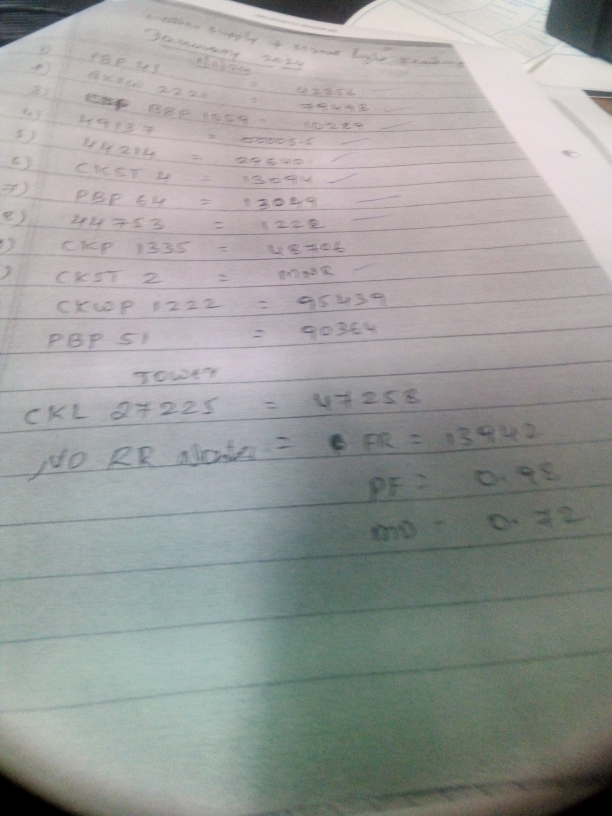 Water Supply & Street Light Reading
January 2024
1) PBP 45 = 42356
2) CKWP 2220 = 79498
3) BBP 1059 = 10284
4) 49137 = 00005.5
5) 44214 = 29640
6) CKST 4 = 13094
7) PBP 64 = 13049
8) 44753 = 1228
9) CKP 1335 = 48706
) CKST 2 = MNR
CKWP 1222 = 95439
PBP 51 = 90364
Tower
CKL 27225 = 47258
NO RR = FR = 13942
PF = 0.98
MD - 0.72